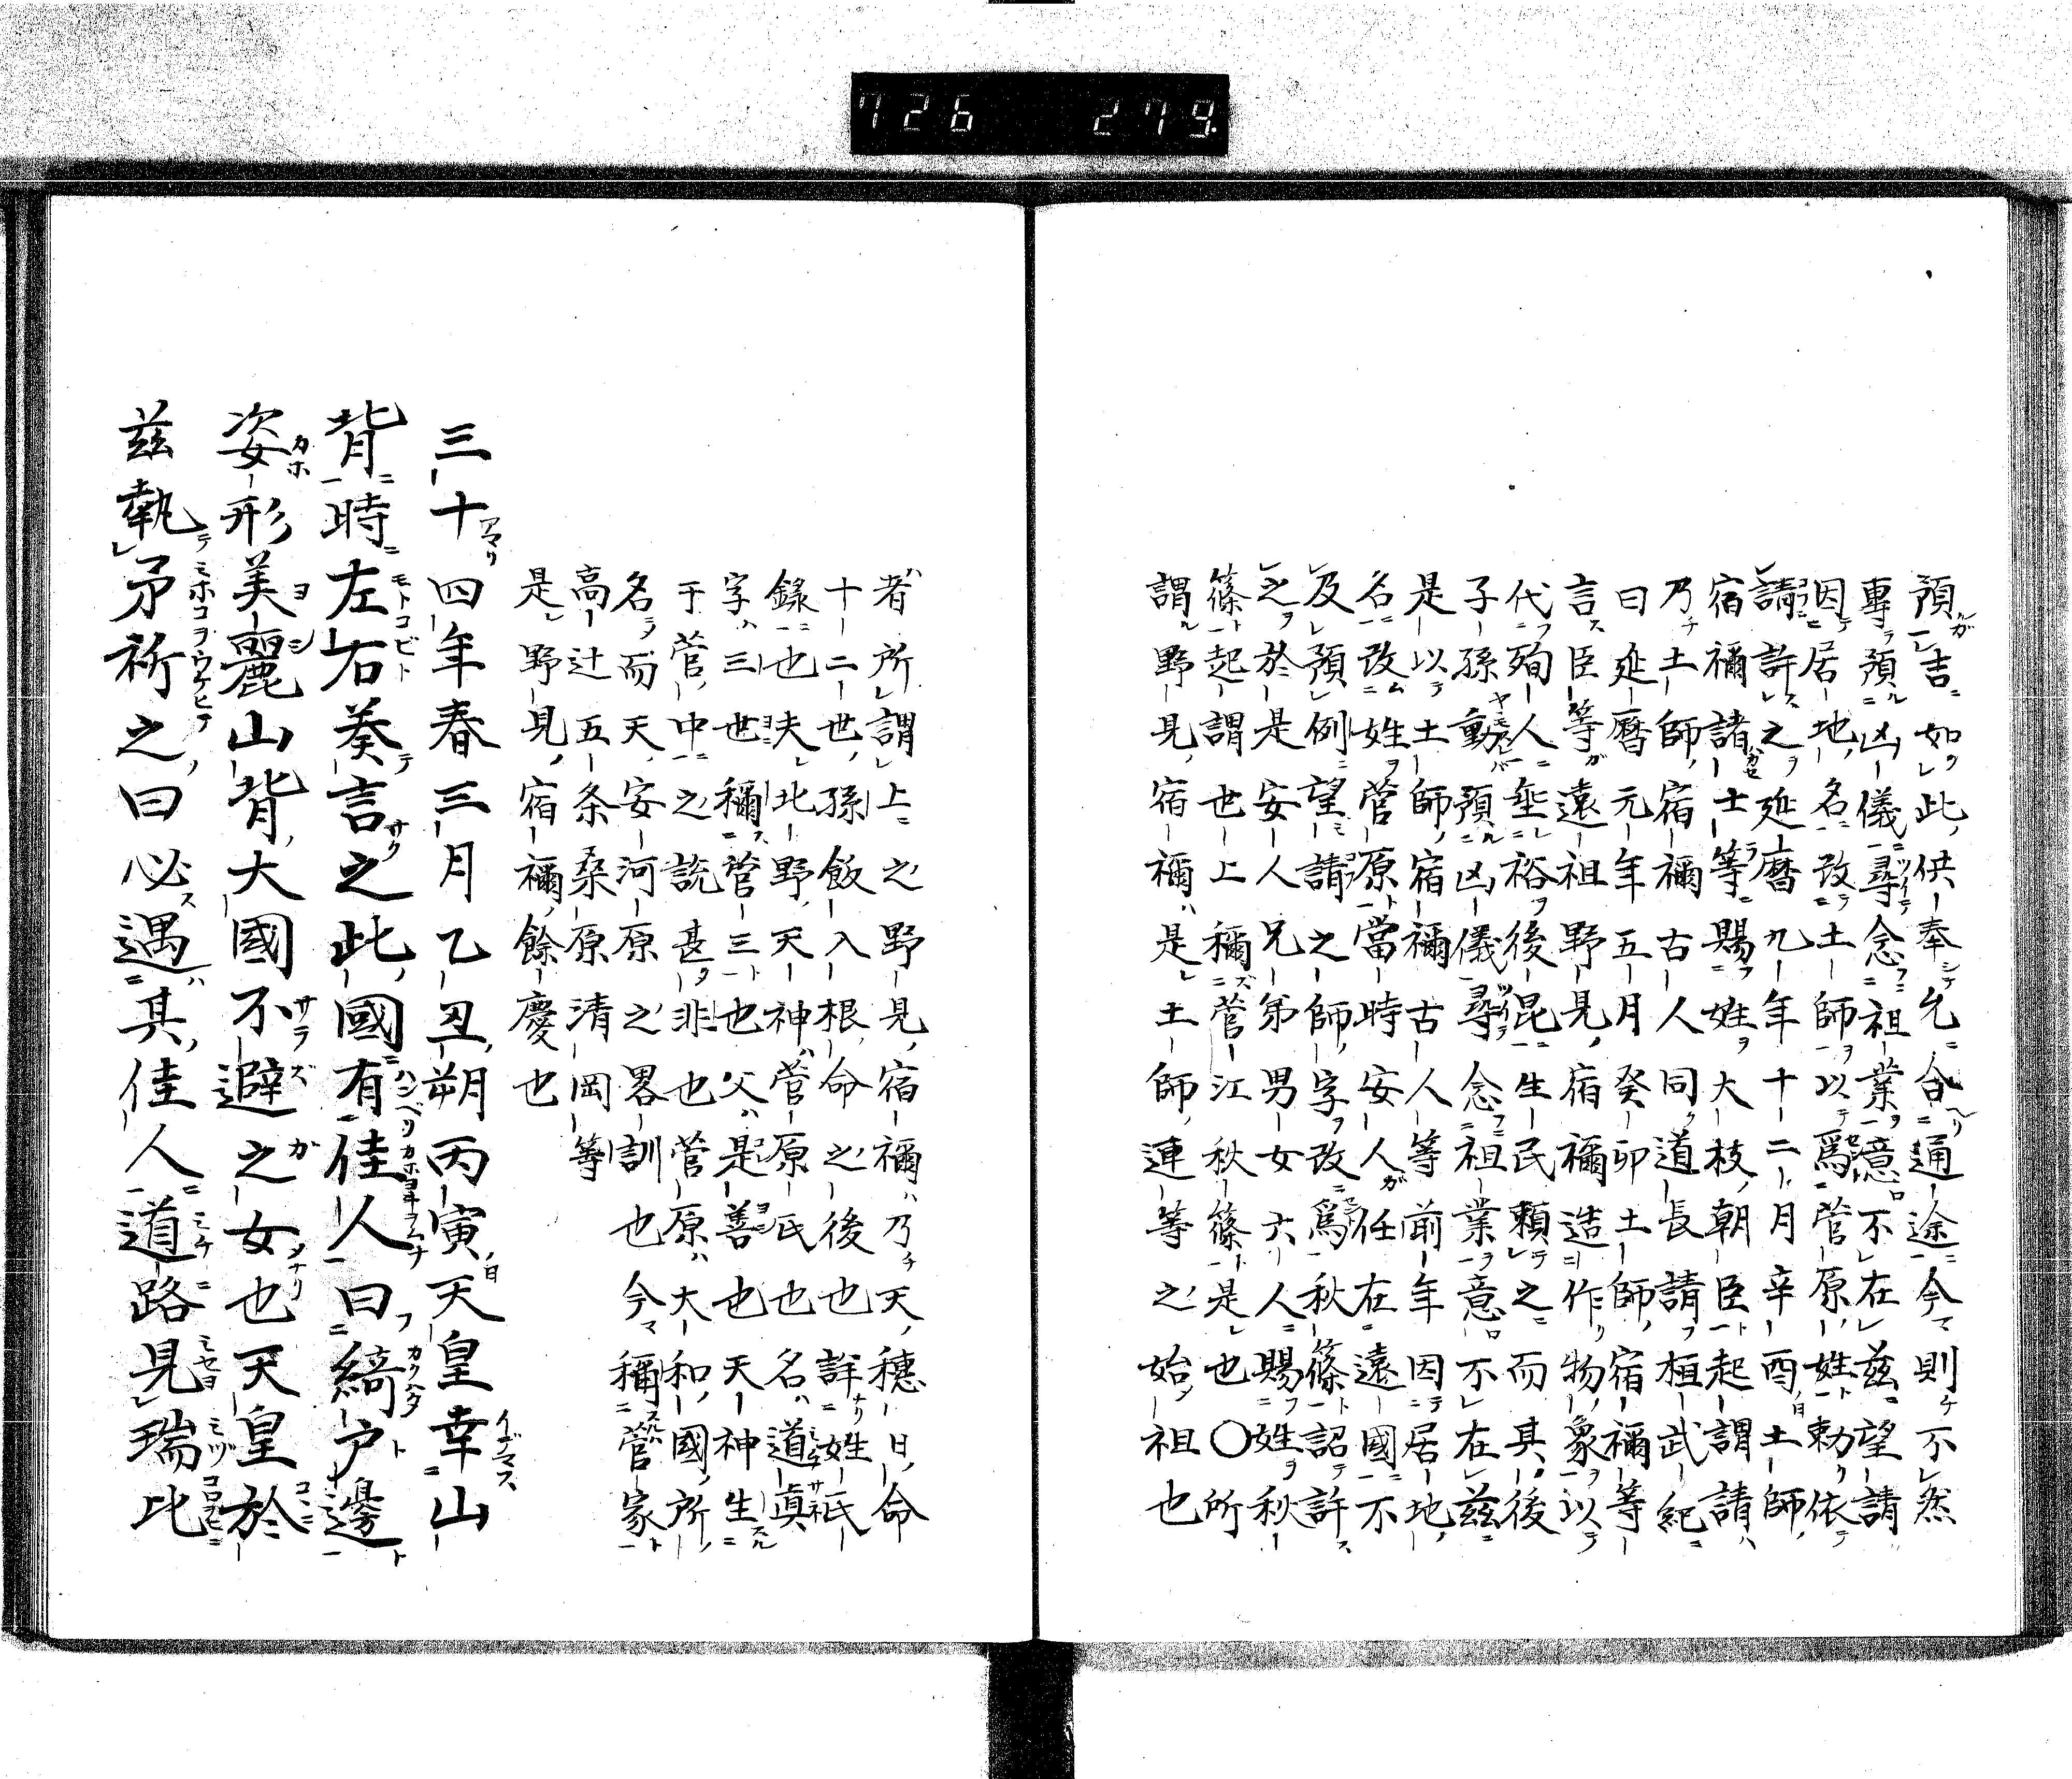 726 279.
預吉如此供奉允合通途今則不然
專預凶儀尋念祖業意不在茲望請
因居地名改土師以爲菅原姓勅依
請許之延曆九年十二月辛酉土師
宿禰諸士等賜姓大枝朝臣起謂請
乃土師宿禰古人同道長請桓武紀
曰延曆元年五月癸卯土師宿禰等
言臣等遠祖野見宿禰造作物象以
代殉人垂裕後昆生民賴之而其後
子孫動預凶儀尋念祖業意不在茲
是以土師宿禰古人等前年因居地
名改姓菅原當時安人任在遠國不
及預例望請之師字改爲秋篠詔許
之於是安人兄弟男女六人賜姓秋
篠起謂世上稱菅江秋篠是也〇所
謂野見宿禰是土師連等之始祖也
者所謂上之野見宿禰乃天穗日命
十二世孫飯入根命之後也詳姓氏
錄也夫北野天神菅原氏也名道眞
字三世稱菅三也父是善也天神生
于菅中之說甚非也菅原大和國所
名而天安河原之畧訓也今稱菅家
高辻五条桑原清岡等
是野見宿禰餘慶也
三十四年春三月乙丑朔丙寅天皇幸山
背時左右葵言之此國有佳人曰綺戶邊
姿形美麗山背大國不避之女也天皇於
茲執矛祈之曰必遇其佳人道路見瑞比